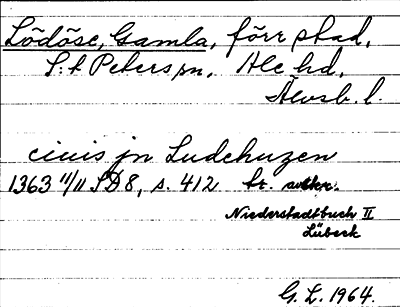 Lödöse, Gamla, förr stad,
S:t Peters sn, Ale hd,
Älvsb. l.
civis jn Ludehuzen
1363 11/11 SD 8, s. 412 or. utkr.
Niederstadtbuch II
Lübeck
G. L. 1964.